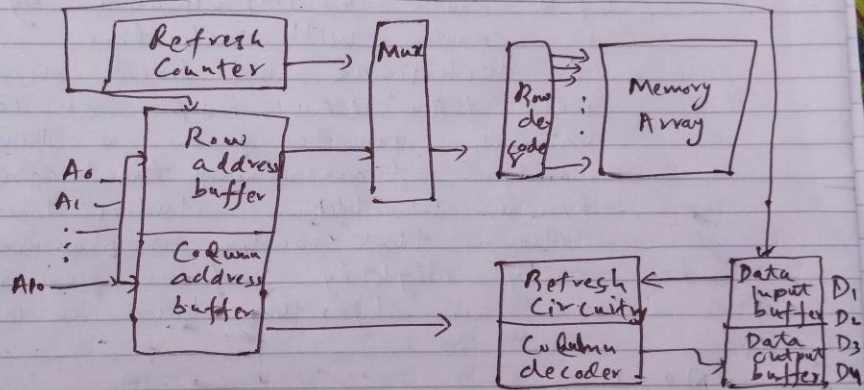 Refresh
Counter
Mux
Row
de
coder
Memory
Array
Row
address
buffer
A0
A1
:
:
A10
Column
address
buffer
Refresh
Circuitry
Column
decoder
Data
input
buffer
Data
output
buffer
D1
D2
D3
D4